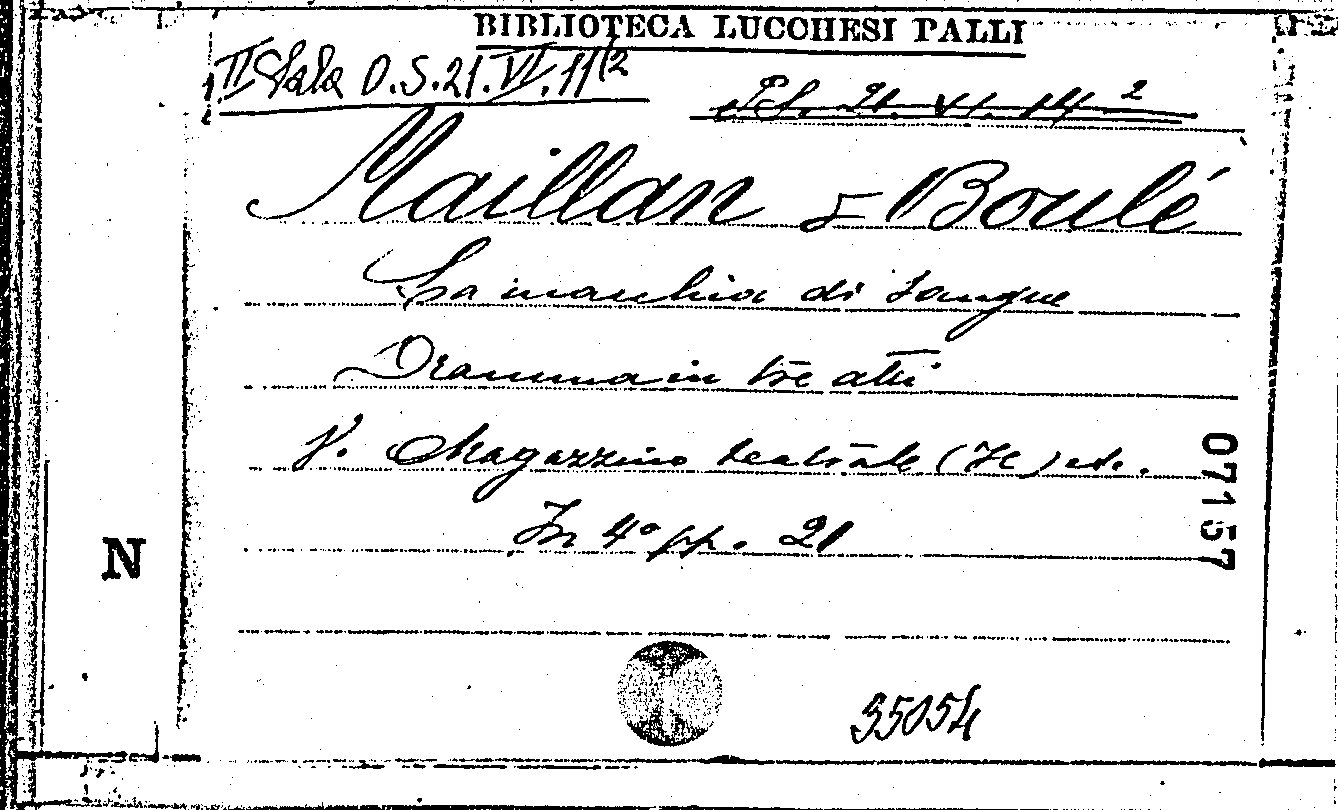 BIBLIOTECA LUCCHESI PALLI
II Sala O.S.21.VI.11/2
P.S. 21. VI. 14 2
Maillan e Boulé
La macchia di sangue
Dramma in tre atti
V. Magazzino teatrale (Il) etc.
In 4° pp. 21
N
07157
35054